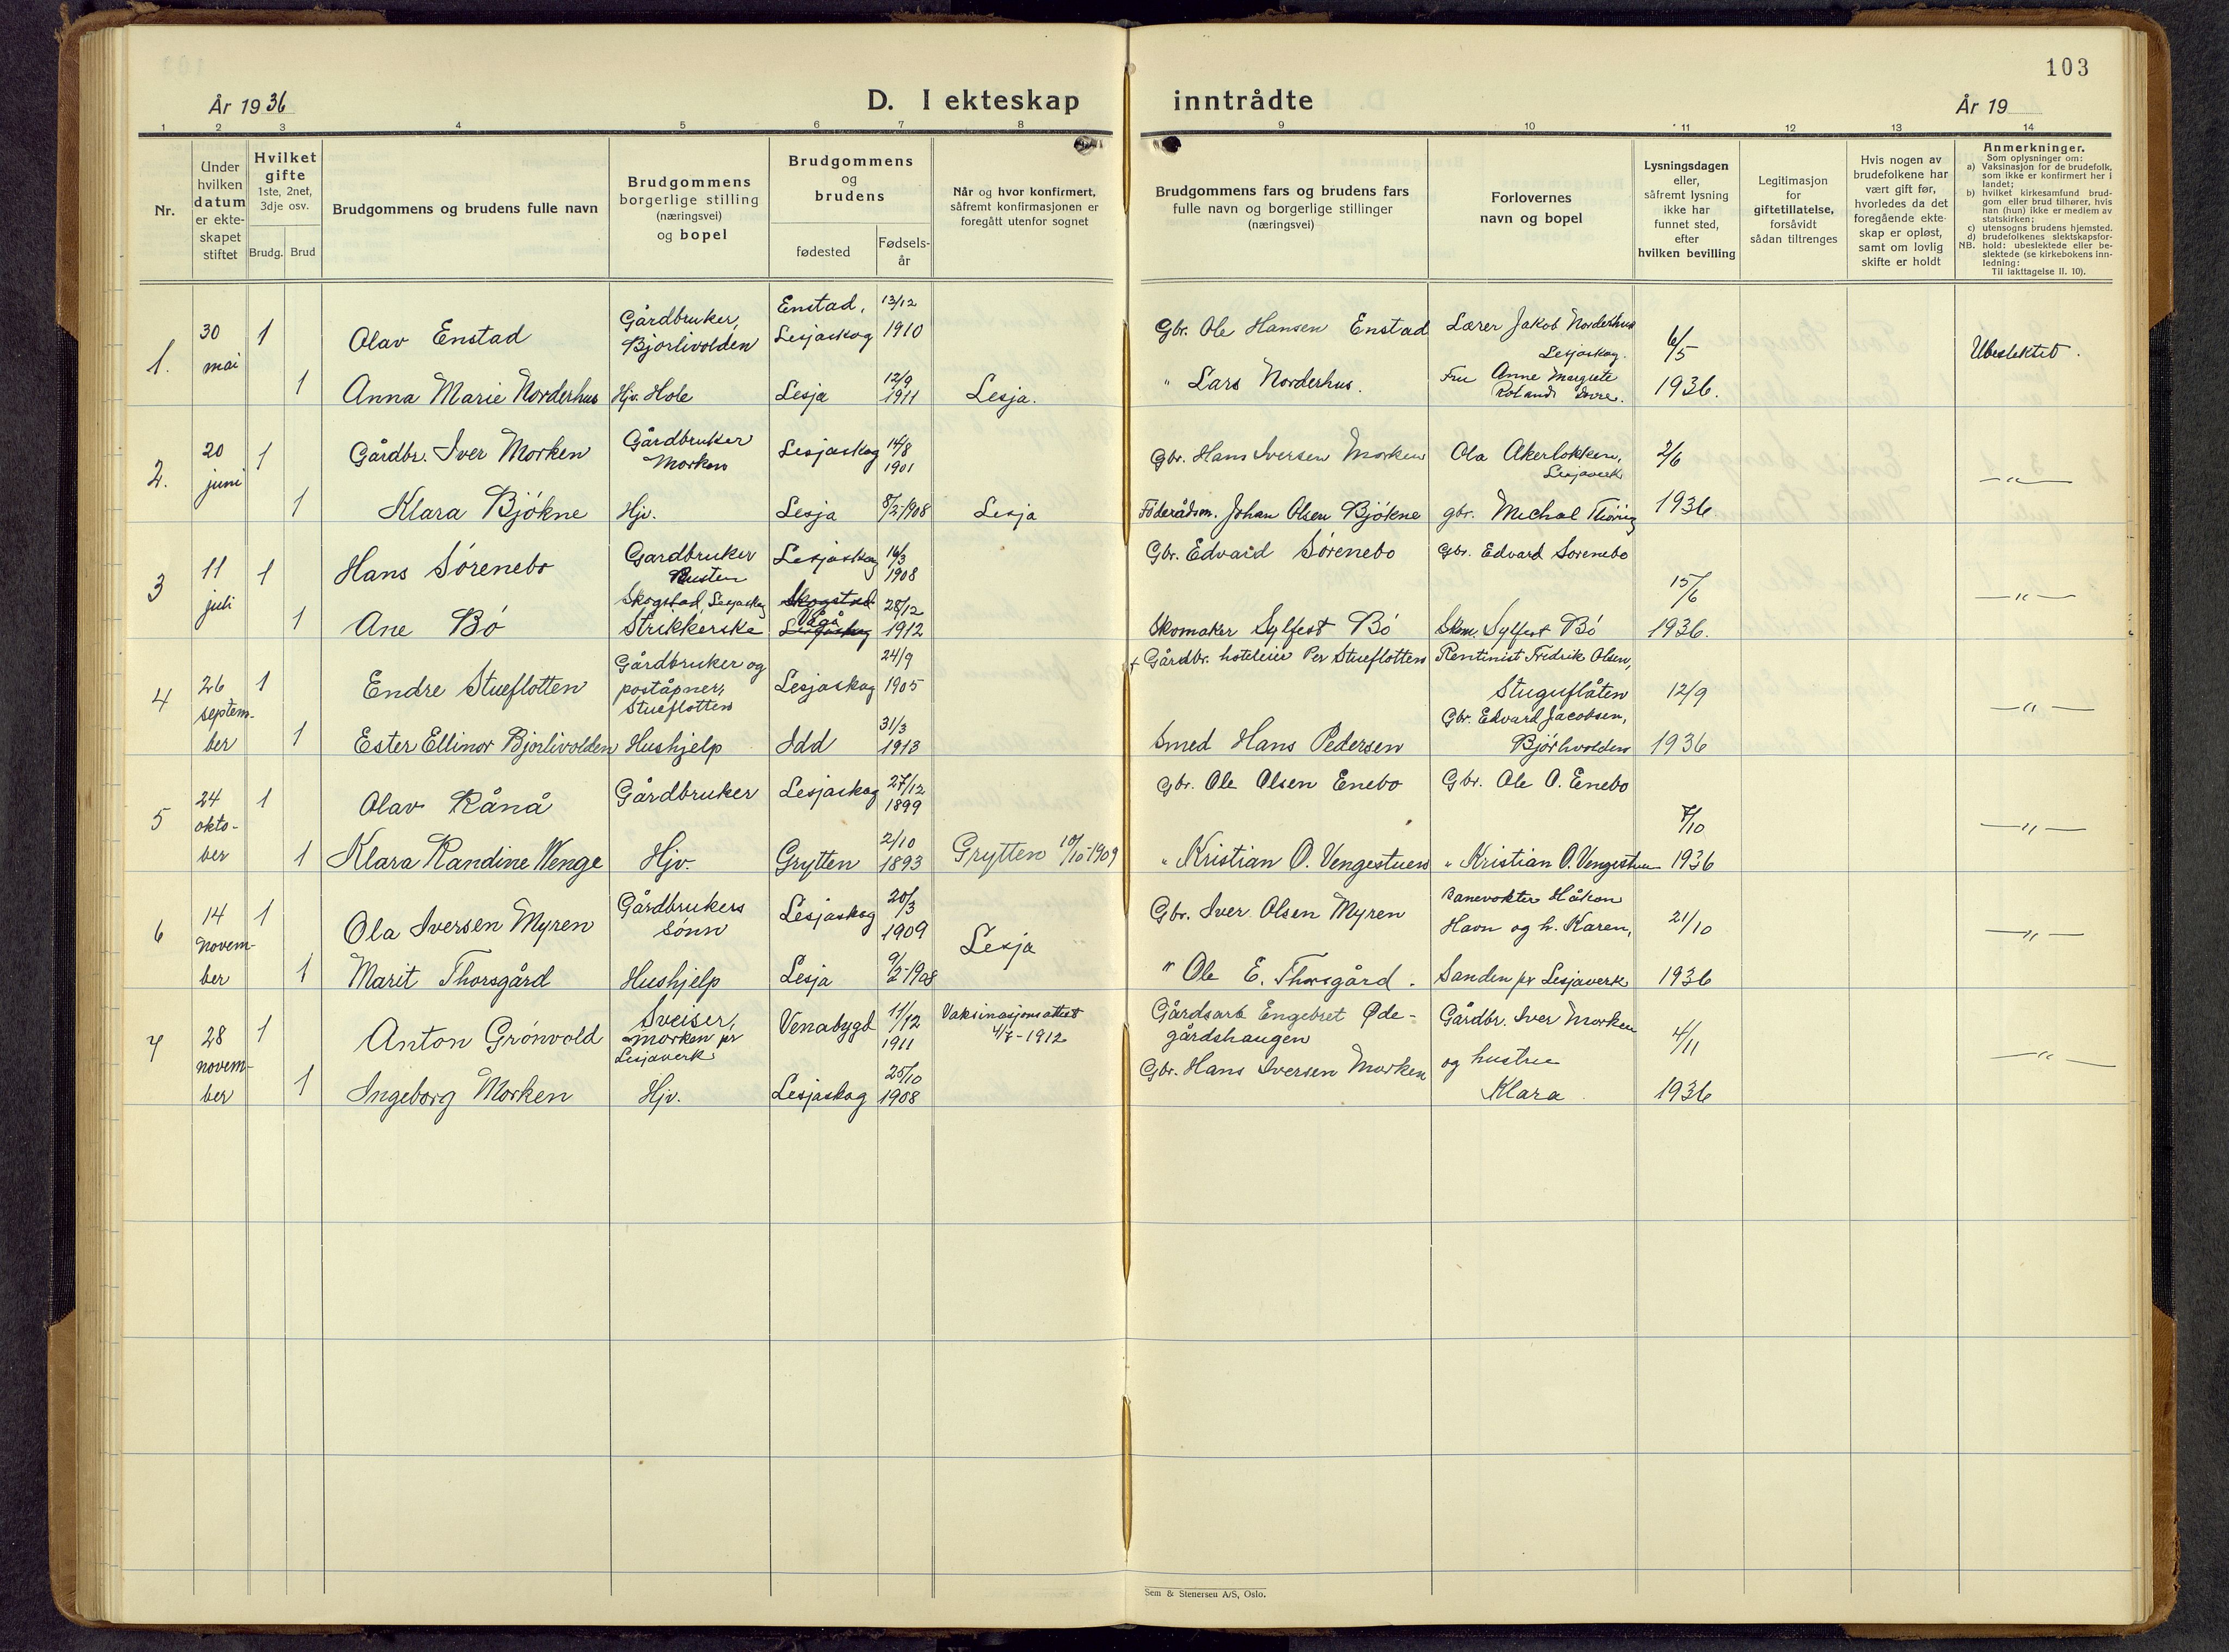 103
År 1936
D. I ekteskap inntrådte
År 19
1 2 3 4 5 6 7 8 9 10 11 12 13 14
Nr.
Under
hvilken
datum
er ekte-
skapet
stiftet
Hvilket
gifte
1ste, 2net,
3dje osv.
Brudg. Brud
Brudgommens og brudens fulle navn
Brudgommens
borgerlige stilling
(næringsvei)
og bopel
Brudgommens
og
brudens
fødested
Fødsels-
år
Når og hvor konfirmert,
såfremt konfirmasjonen er
foregått utenfor sognet
Brudgommens fars og brudens fars
fulle navn og borgerlige stillinger
(næringsvei)
Forlovernes
navn og bopel
Lysningsdagen
eller,
såfremt lysning
ikke har
funnet sted,
efter
hvilken bevilling
Legitimasjon
for
giftetillatelse,
forsåvidt
sådan tiltrenges
Hvis nogen av
brudefolkene har
vært gift før,
hvorledes da det
foregående ekte-
skap er opløst,
samt om lovlig
skifte er holdt
Anmerkninger.
Som oplysninger om:
a) Vaksinasjon for de brudefolk,
som ikke er konfirmert her i
landet;
b) hvilket kirkesamfund brud-
gom eller brud tilhører, hvis
han (hun) ikke er medlem av
statskirken;
c) utensogns brudens hjemsted.
d) brudefolkenes slektskapsfor-
NB. hold: ubeslektede eller be-
slektede (se kirkebokens inn-
ledning:
Til iakttagelse II. 10).
1.
30
mai
1
Olav Enstad
Gårdbruker,
Bjorlivolden
Enstad,
Lesjaskog
13/12
1910
Gbr. Ole Hansen Enstad
Lærer Jakob Norderhus
Lesjaskog.
6/5
1936.
Ubeslektet.
1
Anna Marie Norderhus
Hjv. Hole
Lesja
12/9
1911
Lesja.
" Lars Norderhus.
Fru Anne Margrete
2.
20
juni
1
Gårdbr. Iver Morken
Gårdbruker
Morken
Lesjaskog
14/8
1901
Gbr. Hans Iversen Morken
Ola Akerlokken,
Lesjaverk
2/6
1936
—"—
1
Klara Bjökne
Hjv.
Lesja
8/2-1908
Lesja
Föderådsm. Johan Olsen Bjökne
gbr. Michal
3
11
juli
1
Hans Sörenebo
Gardbruker
Rusten
Lesjaskog
16/3
1908
Gbr. Edvard Sörenebo
Gbr. Edvard Sorenebo
15/6
1936.
—"—
1
Ane Bö
Skogstad, Lesjaskog
Strikkerske
Skogstad
Vågå
Lesjaskog
28/12
1912
Skomaker Sylfest Bö
Skm. Sylfest Bö
4
26
septem-
ber
1
Endre Stueflotten
Gårdbruker og
poståpner,
Stueflotten
Lesjaskog
24/9
1905
+ Gårdbr. hoteleier Per Stueflotten
Rentinist Fredrik Olsen,
Stuguflåten
12/9
1936
—"—
1
Ester Ellinor Bjorlivolden
Hushjelp
Idd
31/3
1913
Smed Hans Pedersen
Gbr. Edvard Jacobsen,
Bjórlivolden
5
24
okto-
ber
1
Olav Rånå
Gårdbruker
Lesjaskog
27/12
1899
Gbr. Ole Olsen Enebo
Gbr. Ole O. Enebo
7/10
1936
—"—
1
Klara Randine Wenge
Hjv.
Grytten
2/10
1893
Grytten 10/10-1909
" Kristian O. Vengestuen
" Kristian O. Vengestuen
6
14
novem-
ber
1
Ola Iversen Myren
Gårdbrukers
sönn
Lesjaskog
20/3
1909
Lesja
Gbr. Iver Olsen Myren
Banevokter Håkon
Havn og h. Karen,
Sanden pr Lesjaverk
21/10
1936
—"—
1
Marit Thorsgård
Hushjelp
Lesja
9/2-1908
" Ole E. Thorsgård.
7
28
novem-
ber
1
Anton Grönvold
Sveiser,
Morken pr
Lesjaverk
Venabygd
11/12
1911
Vaksinasjonsattest
4/7-1912
Gårdsarb Engebret Øde-
gårdshaugen
Gårdbr. Iver Morken
og hustru
Klara
4/11
1936
—"—
1
Ingeborg Morken
Hjv.
Lesjaskog
25/10
1908
Gbr. Hans Iversen Morken
Sem & Stenersen A/S, Oslo.